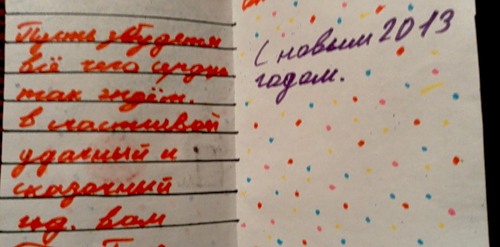 Пусть збудется
всё чего сердце
так ждёт.
в счастливой
удачный и
сказачный
год. вам
С новым 2013
годом.